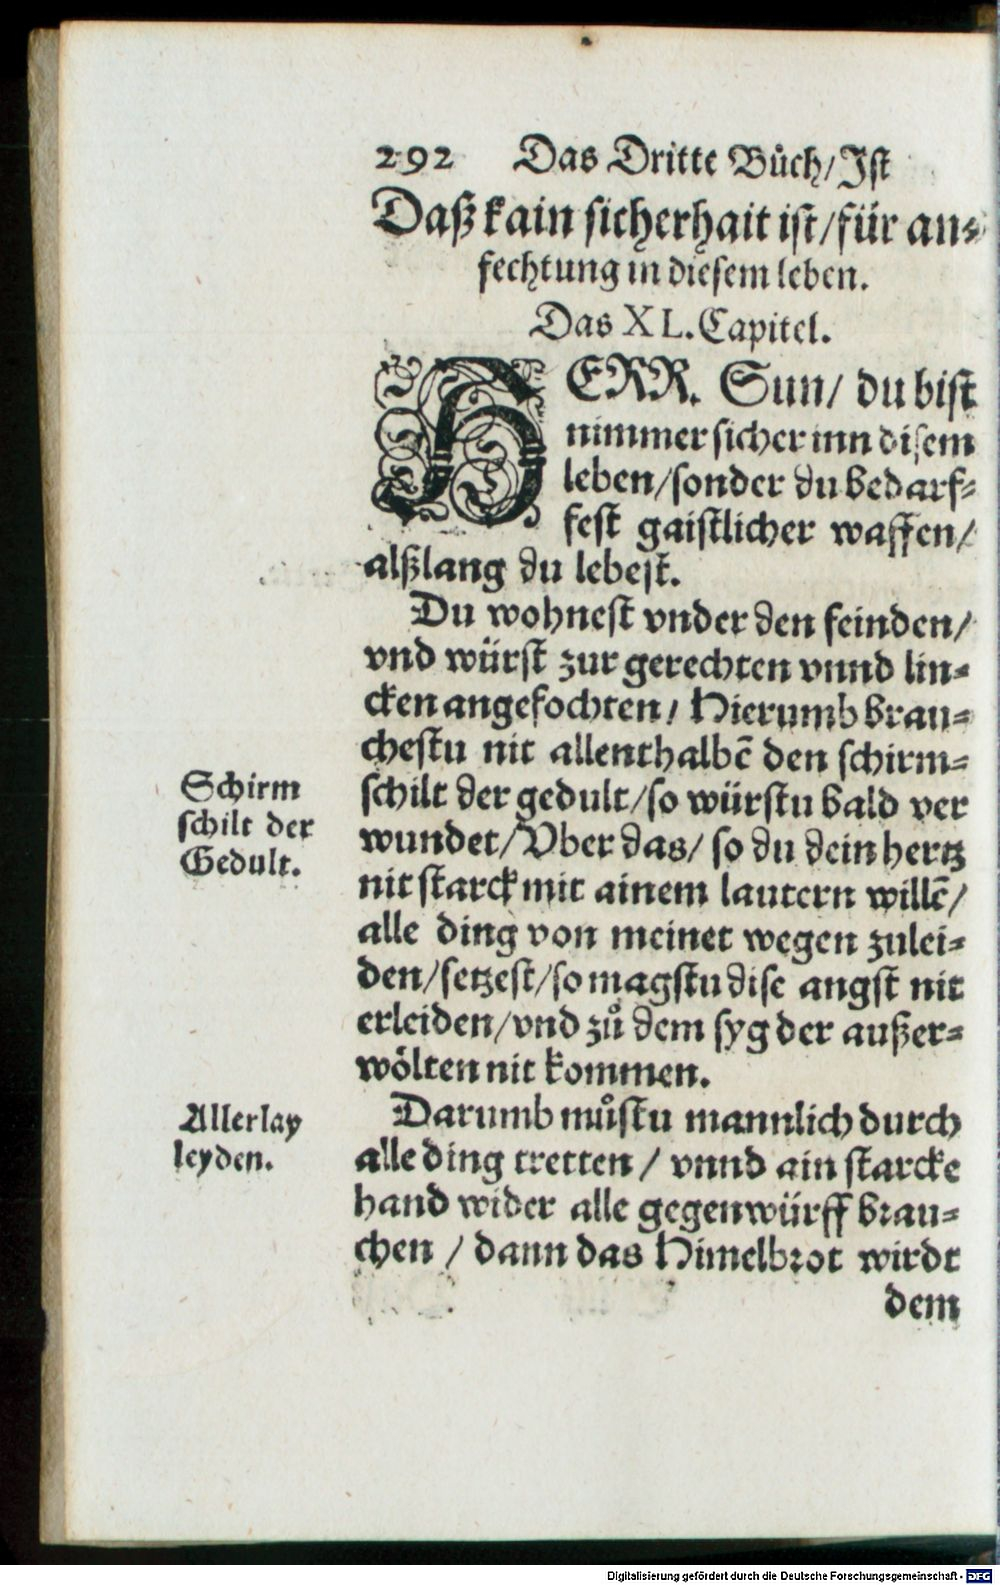 292 Das Dritte Bůch/Ist
Daß kain sicherhait ist/für an⸗
fechtung in diesem leben.
Das XL. Capitel.
HERR. Sun/ du bist
nimmer sicher inn disem
leben/sonder du bedarf⸗
fest gaistlicher waffen/
alßlang du lebest.
Du wohnest vnder den feinden/
vnd würst zur gerechten vnnd lin⸗
cken angefochten/ Hierumb brau⸗
chestu nit allenthalbē den schirm⸗
Schirm
schilt der
Gedult.
schilt der gedult/so würstu bald ver
wundet/Vber das/ so du dein hertz
nit starck mit ainem lautern willē/
alle ding von meinet wegen zulei⸗
den/setzest/so magstu dise angst nit
erleiden/vnd zů dem syg der außer⸗
wölten nit kommen.
Allerlay
leyden.
Darumb můstu mannlich durch
alle ding tretten / vnnd ain starcke
hand wider alle gegenwürff brau⸗
chen / dann das Himelbrot wirdt
dem
Digitalisierung gefördert durch die Deutsche Forschungsgemeinschaft - DFG